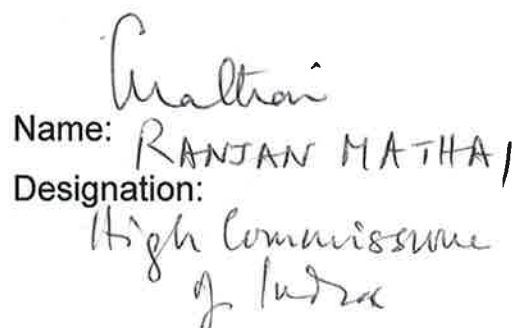 Name: RANJAN MATHAI
Designation:
High Commissione
of India